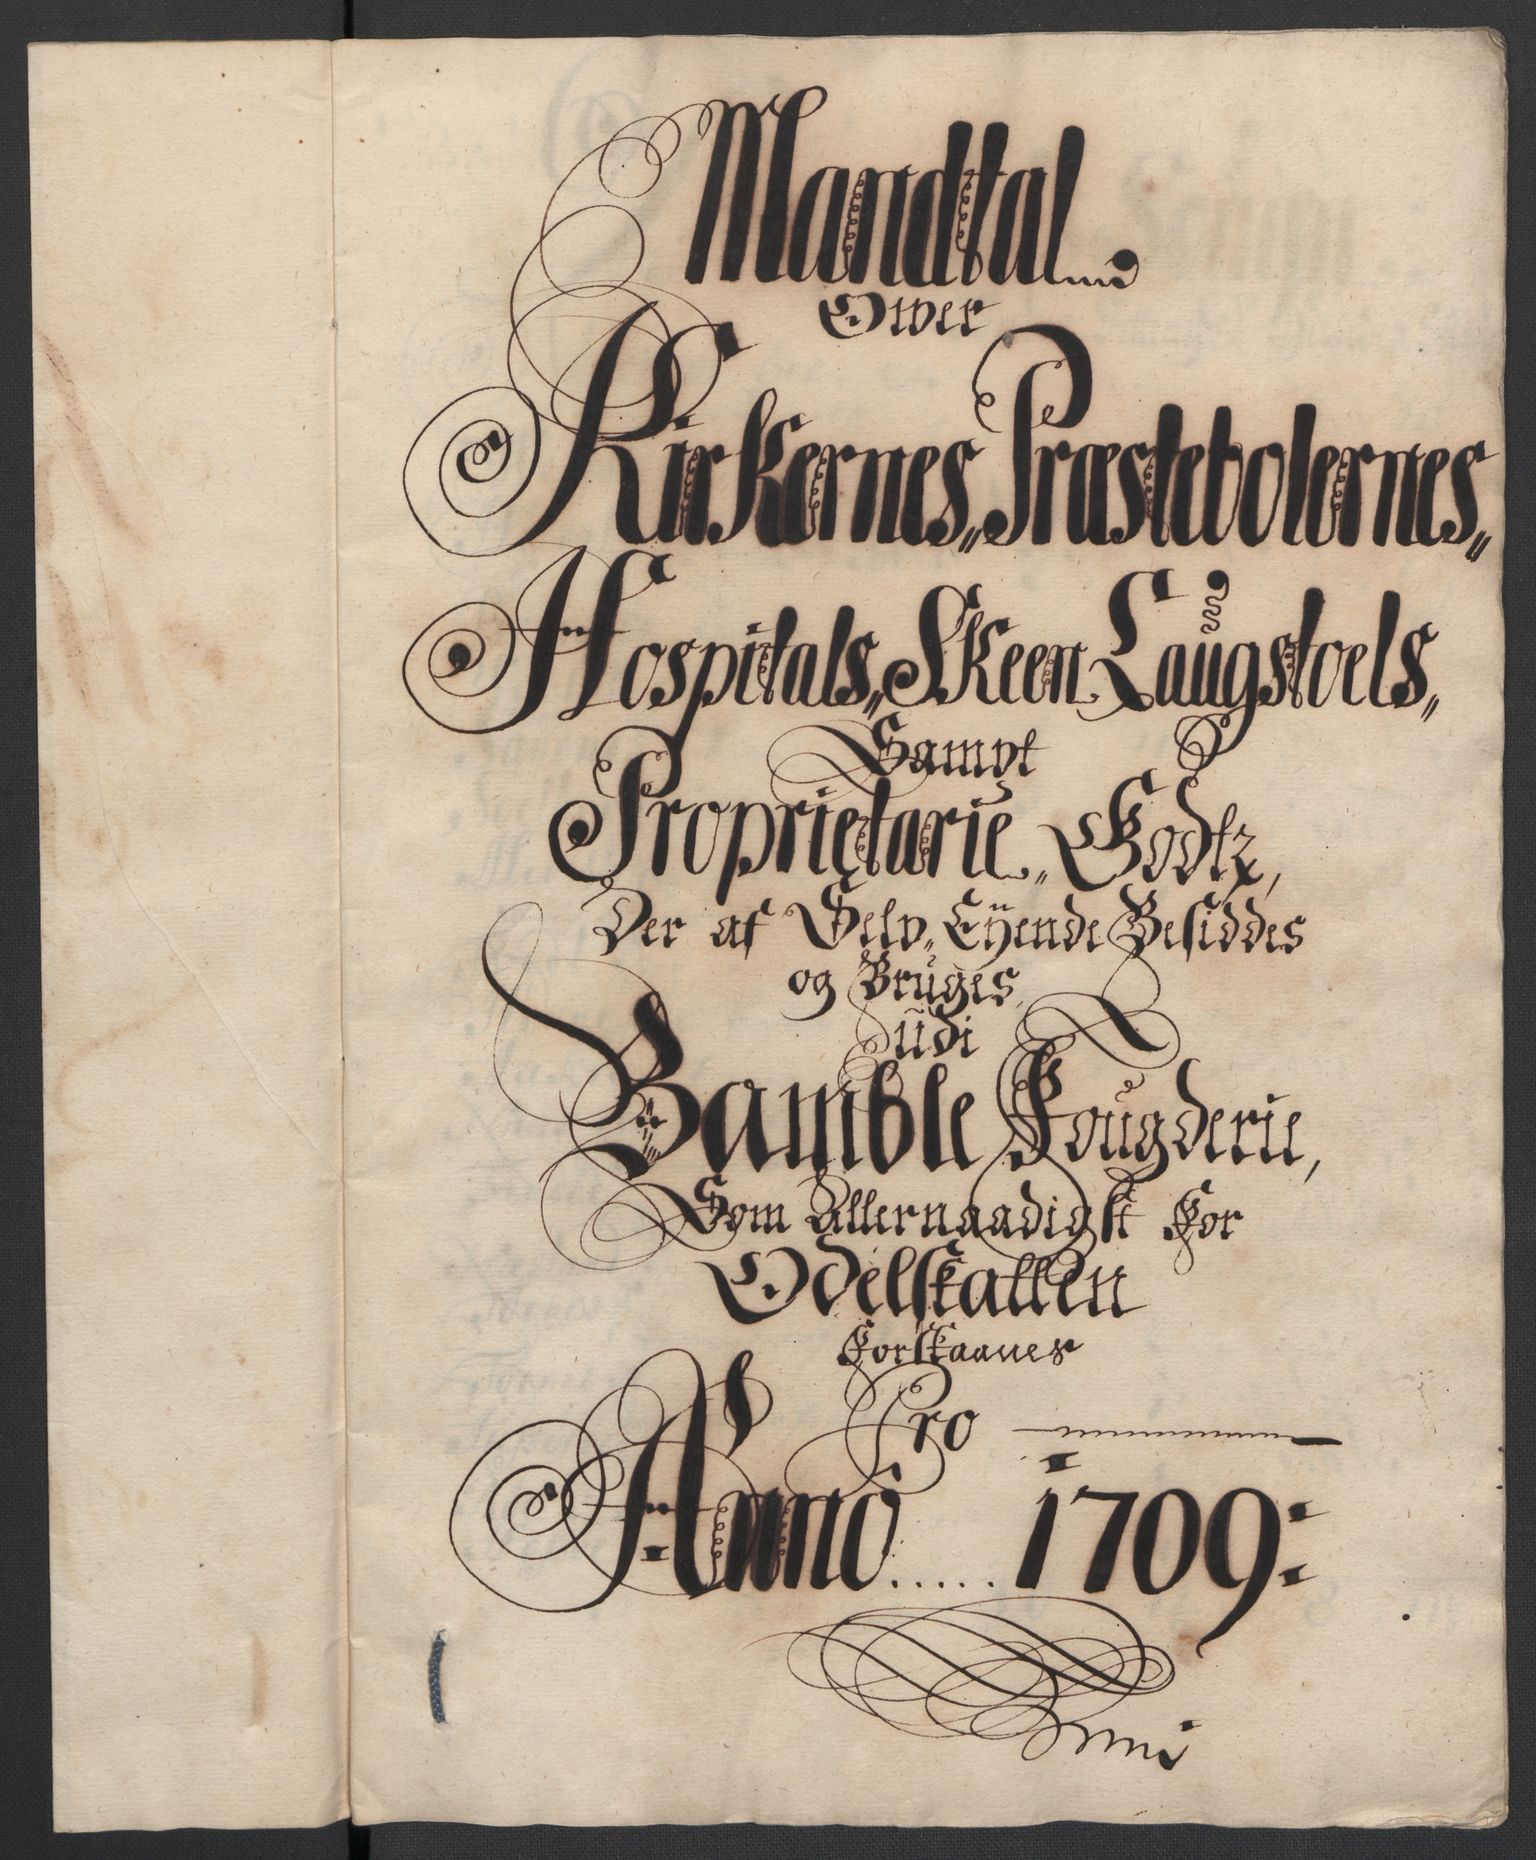 Mandtal
Ower
Kirkernes„ Præstebolernes„
Hospitals„ Skeen Laugstoels„
Sampt
Proprietarie„ Godtz,
Der af Selv„ Eÿende Besiddes
og Bruges,
udi
Bamble Fougderie,
Som Allernaadigst For
Odelskatten
Forskaanes
Pro
Anno..... 1709: